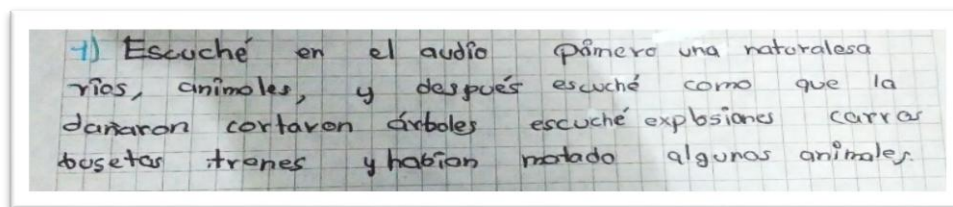 1) Escuché en el audio pámero una naturalesa
ríos, animales, y después escuché como que la
dañaron cortaron árboles escuché explosiones carros
busetas trenes y habian matado algunos animales.